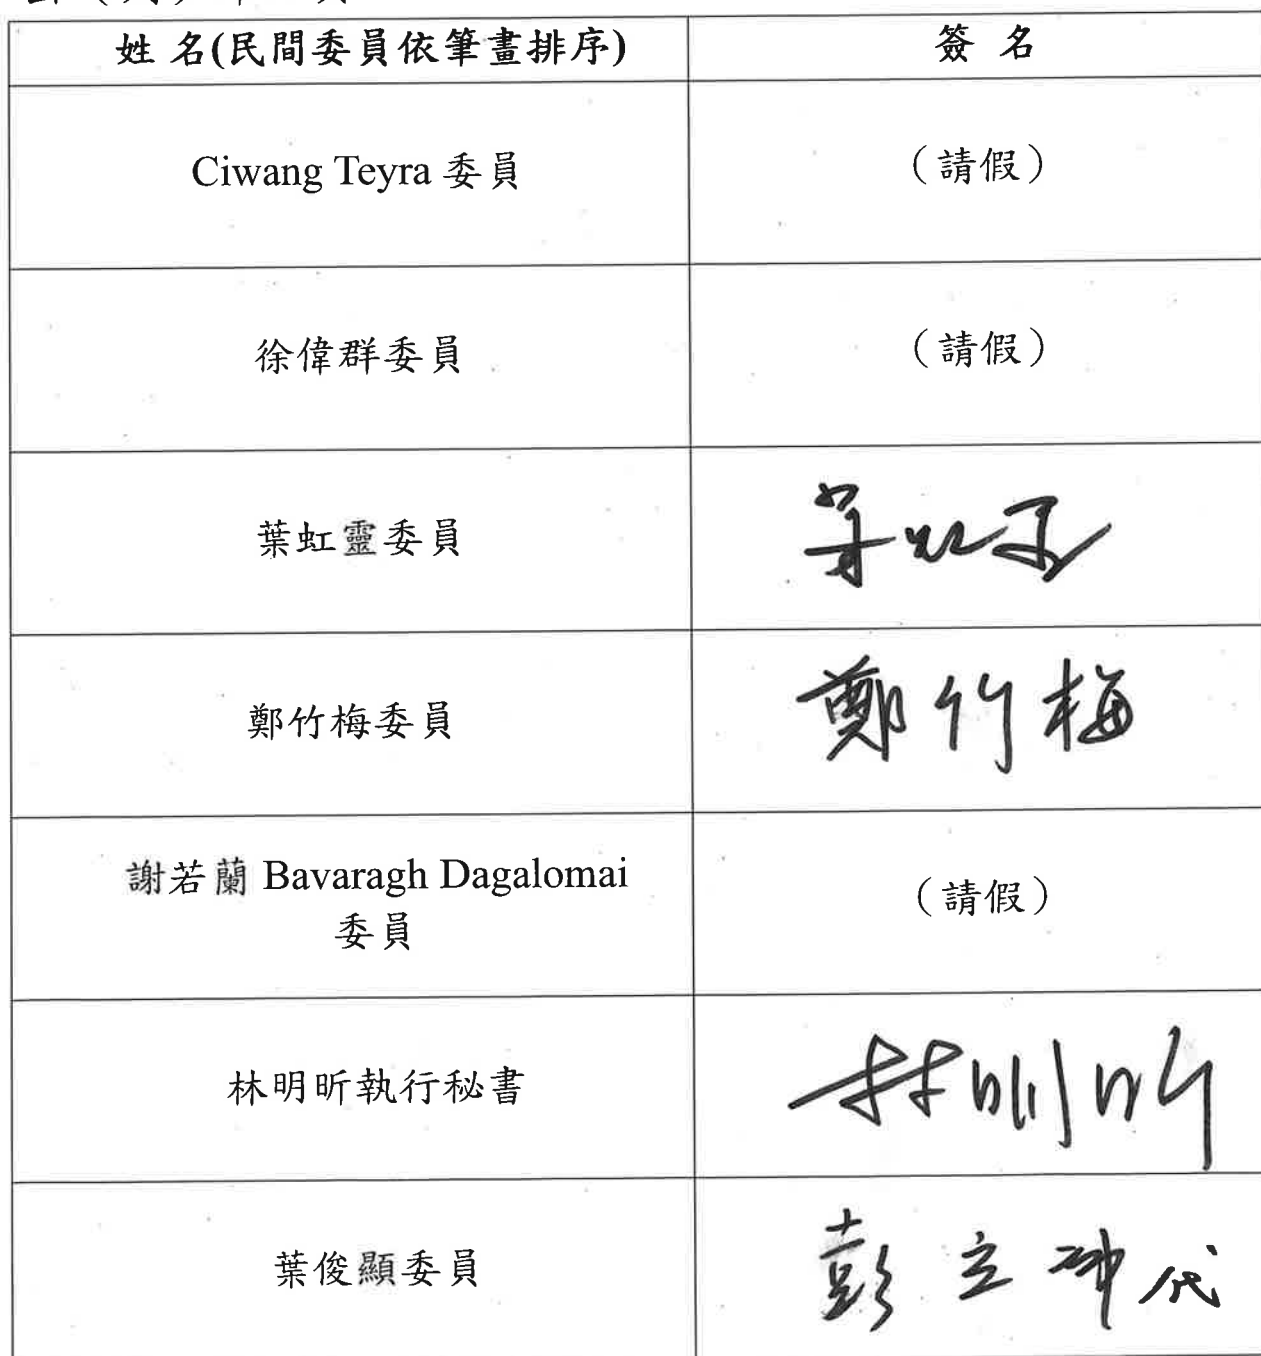 姓 名(民間委員依筆畫排序) 簽 名
Ciwang Teyra 委員 (請假)
徐偉群委員 (請假)
葉虹靈委員 葉虹靈
鄭竹梅委員 鄭竹梅
謝若蘭 Bavaragh Dagalomai
委員 (請假)
林明昕執行秘書 林明昕
葉俊顯委員 彭立沛代